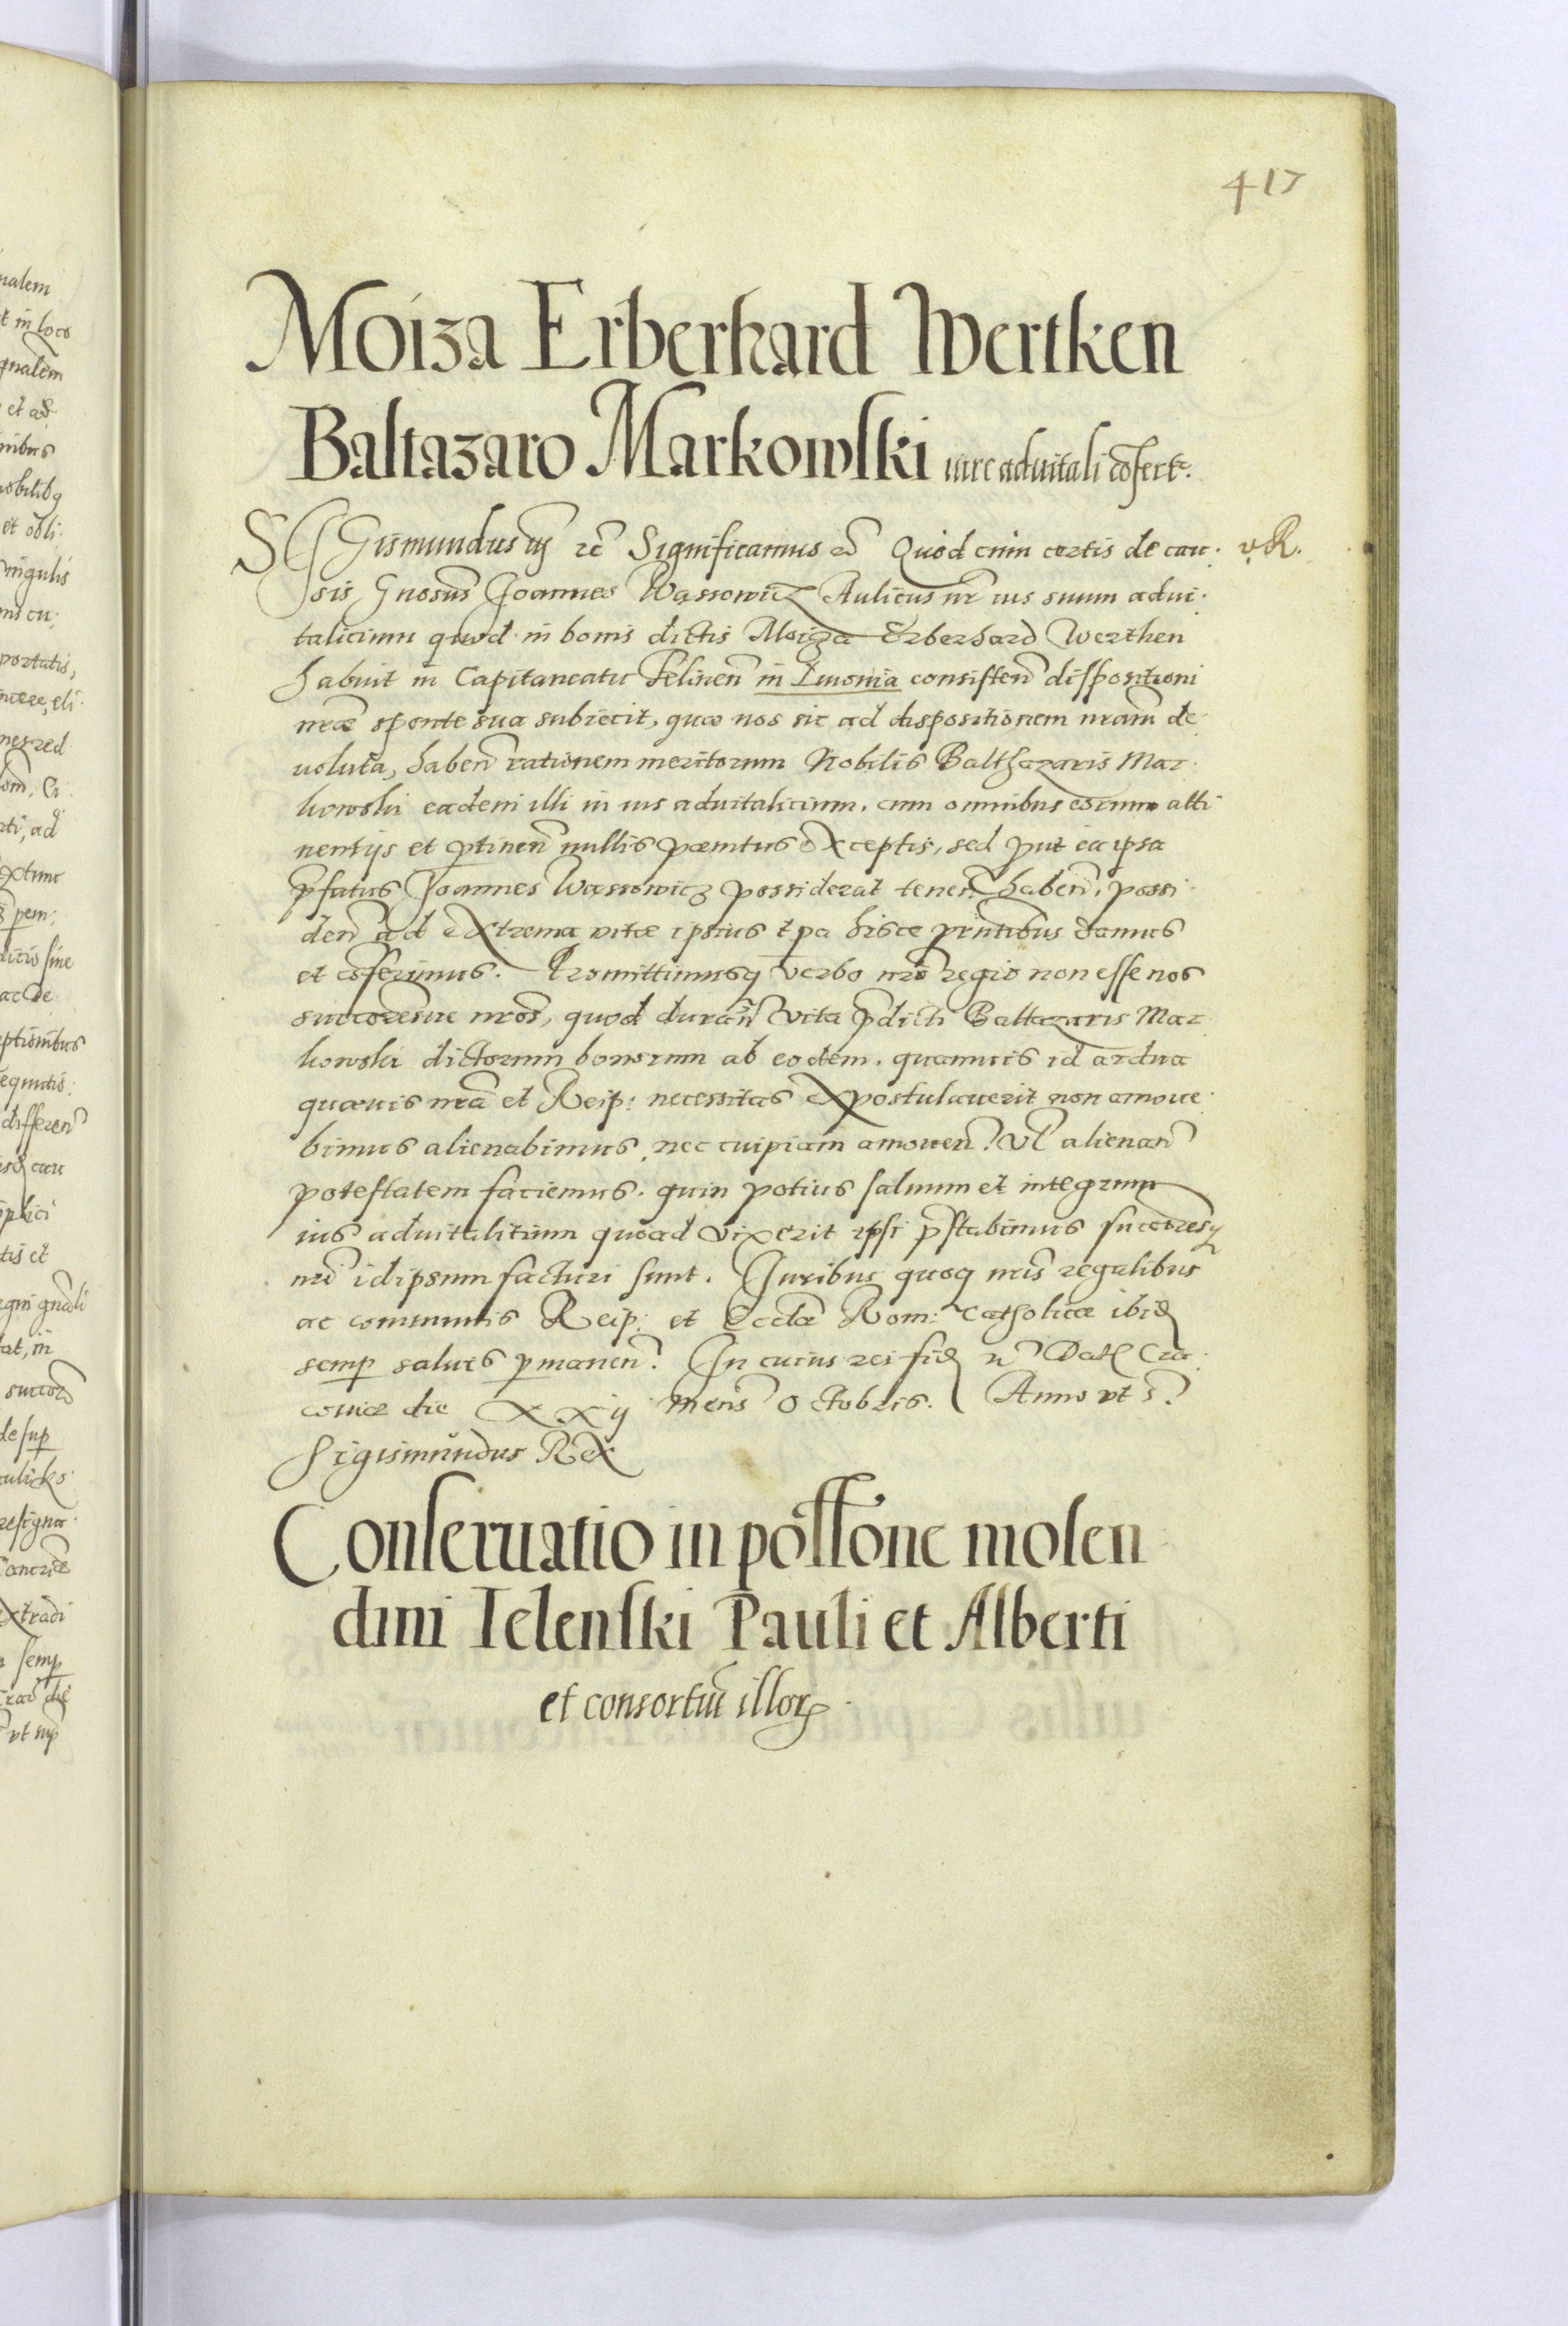 417
Moiza Erberhard Wertken
Baltazaro Markowski iure aduitali cōfertr.
SIGismundus iij rc̃ Significamus rc̃ Quod cum certis de cau: v.R.
sis Gnosus Joannes Wassowicz Aulicus nr̃ ius suum adui:
talicium quod in bonis dictis Moiza Erberhard Werthen
habuit in Capitaneatu Felinen̄ in Liuonia consisten̄ dispositioni
nr̃æ sponte sua subiecit, quæ nos sic ad dispositionem nr̃am de
uoluta, haben̄ rationem meritorum Nobilis Balthazaris Mar:
kowski eadem illi in ius aduitalicium, cum omnibus eorum atti
nentijs et ꝑtinen̄ nullis pœnitus exceptis, sed ꝓut ea ipsa
p̄fatus Joannes Wassowicz possiderat tenen̄ haben̄, possi:
den̄ ad extrema vitæ ipsius tp̄a hisce pr̃ntibus damus
et cōferimus. Promittimusq verbo nr̃o regio non esse nos
succoresue nr̃os, quod duran̄ vita p̄dicti Baltazaris Mar
kowski dictorum bonorum ab eodem, quamuis id ardua
quæuis nr̃a et Reip: necessitas expostulauerit non amoue:
bimus alienabimus, nec cuipiam amouen̄ vl alienan̄
potestatem faciemus, quin potius saluum et integrum
ius aduitalitium quoad vixerit ipsi p̄stabimus succoresq
nr̃i idipsum facturi sunt. Juribus quoq nr̃is regalibus
ac communis Reip: et Eccl̃æ Rom: Catholicæ ibid
semp saluis ꝑmanen̄. In cuius rei fid rc̃ Dat Cra:
couiæ die XXij mens̄ Octobris. Anno vt s̄.
Sigismundus Rex
Conseruatio in possōne molen
dini Ielenski Pauli et Alberti
et consortiū illor.